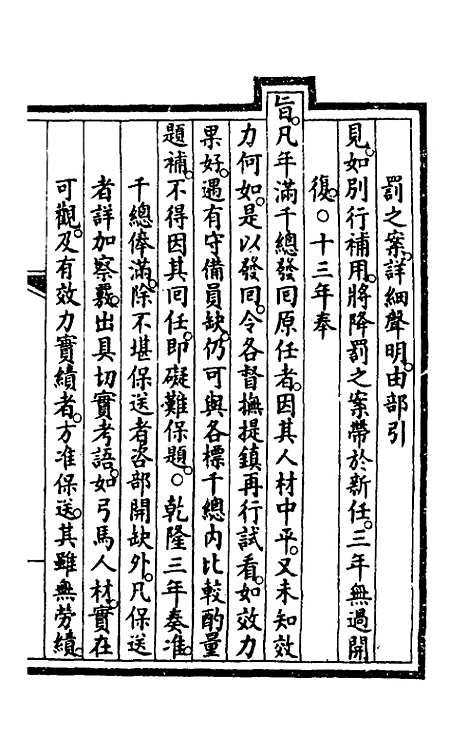 罰之案。詳細聲明。由部引
見。如別行補用。將降罰之案帶於新任。三年無過開
復。○十三年奉
旨。凡年滿千總發回原任者。因其人材中平。又未知效
力何如。是以發回。令各督撫提鎮再行試看。如效力
果好。遇有守備員缺。仍可與各標千總內比較酌量
題補。不得因其回任。即礙難保題。○乾隆三年奏准。
千總俸滿。除不堪保送者咨部開缺外。凡保送
者詳加察覈。出具切實考語。如弓馬人材。實在
可觀。及有效力實績者。方准保送。其雖無勞績。